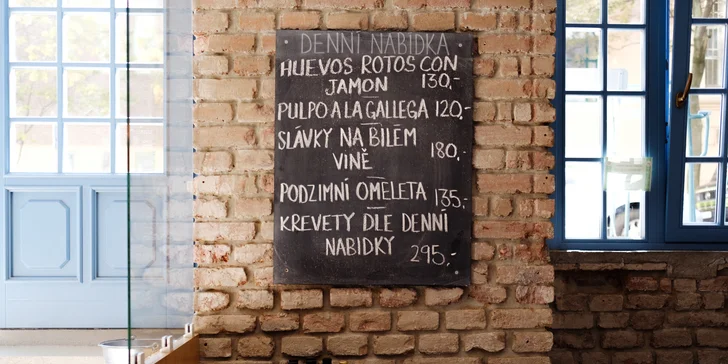 DENNÍ NABÍDKA
HUEVOS ROTOS CON
JAMON 130,-
PULPO A LA GALLEGA 120,-
SLÁVKY NA BÍLÉM
VINĚ 180,-
PODZIMNÍ OMELETA 135,-
KREVETY DLE DENNÍ
NABIDKY 295,-